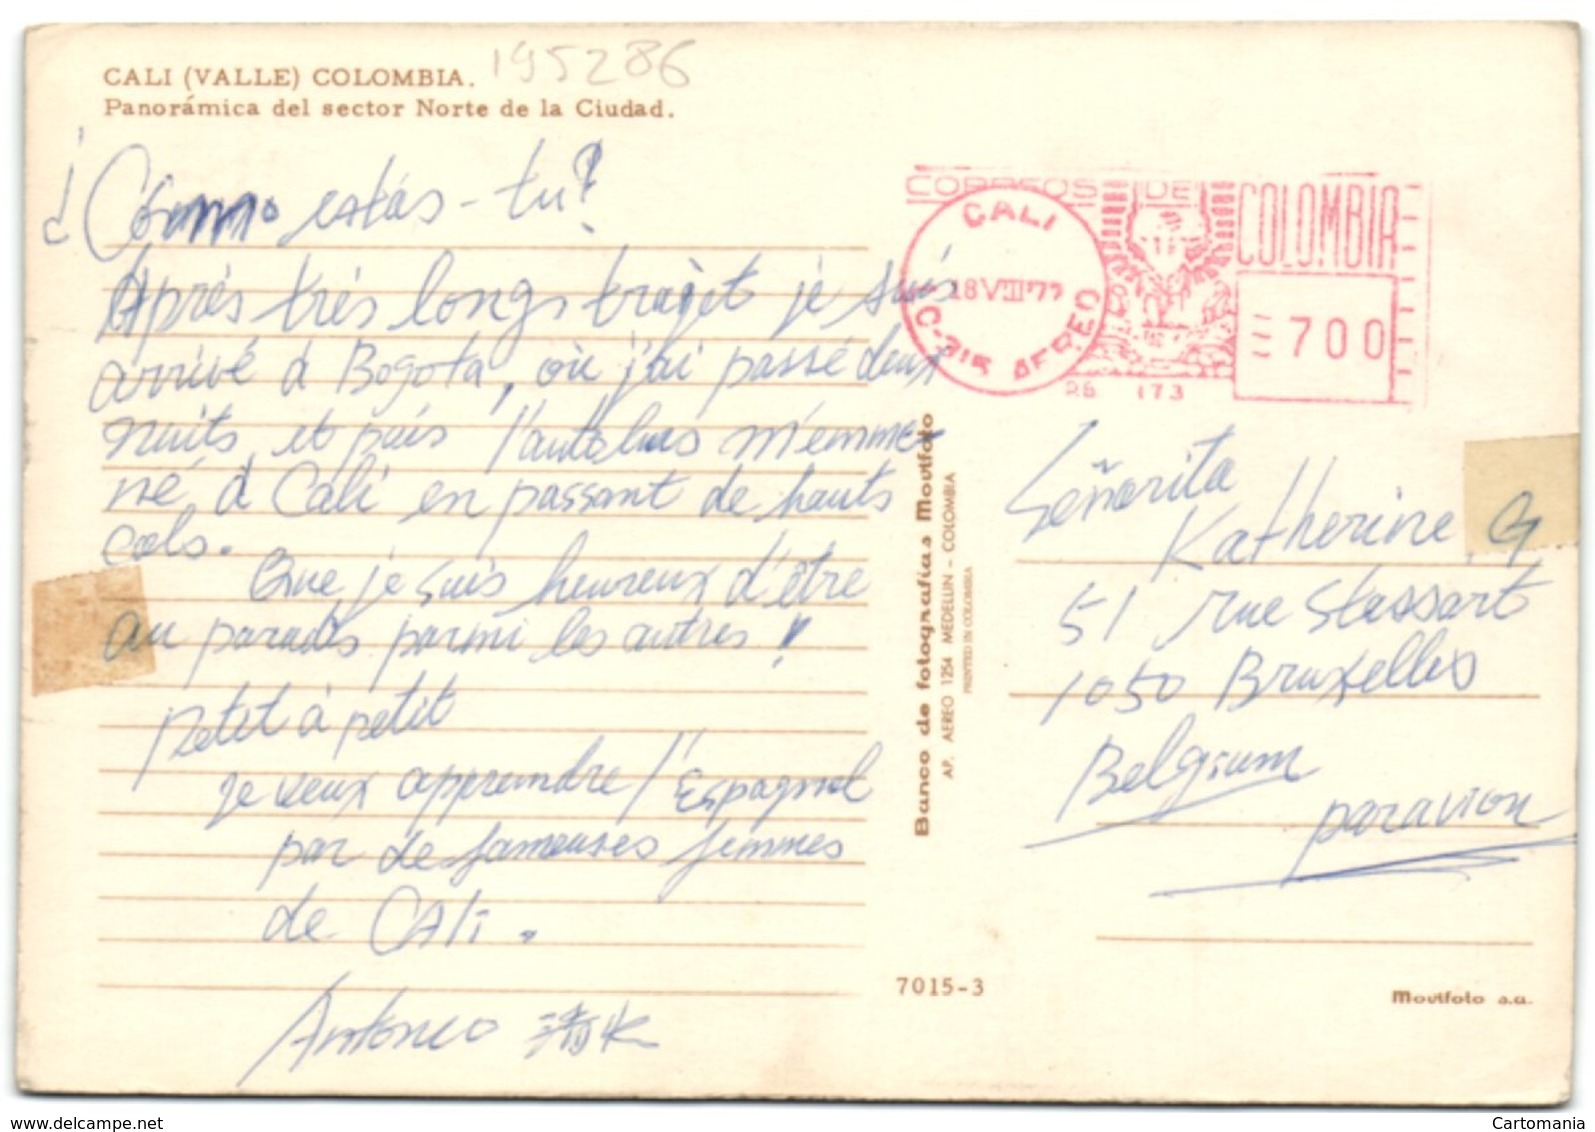 195286
CALI (VALLE) COLOMBIA.
Panorámica del sector Norte de la Ciudad.
¿Cómo estás-tu?
Après très longs trajet je suis
arrivé à Bogota, où j'ai passé deux
nuits, et puis l'autobus m'emme-
né à Cali en passant de hauts
cols.
Que je suis heureux d'être
au paradis parmi les autres!
petit à petit
je veux apprendre l'Espagnol
par de fameuses femmes
de CALI.
Antonio
CORREOS DE COLOMBIA
CALI
18 VIII 77
AEREO
700
173
Banco de fotografías Movifoto
AP. AEREO 1254 MEDELLIN - COLOMBIA
PRINTED IN COLOMBIA
Señorita
Katherine. G
51 rue Stassart
1050 Bruxelles
Belgium
par avion
7015-3
Movifoto s.a.
www.delcampe.net
Cartomania